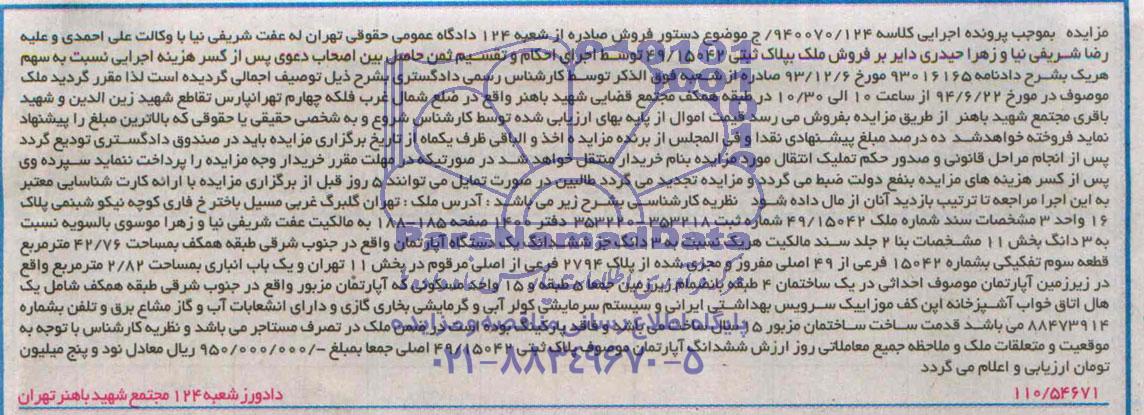 مزایده بموجب پرونده اجرایی کلاسه ۹۴۰۰۷۰/۱۲۴/ ج موضوع دستور فروش صادره از شعبه ۱۲۴ دادگاه عمومی حقوقی تهران له عفت شریفی نیا با وکالت علی احمدی و علیه
رضا شریفی نیا و زهرا حیدری دایر بر فروش ملک بپلاک ثبتی ۴۹/۱۵۰۴۲ توسط اجرای احکام و تقسیم ثمن حاصل بین اصحاب دعوی پس از کسر هزینه اجرایی نسبت به سهم
هریک بشرح دادنامه ۹۳۰۱۶۱۶۵ مورخ ۹۳/۱۲/۶ صادره از شعبه فوق الذکر توسط کارشناس رسمی دادگستری بشرح ذیل توصیف اجمالی گردیده است لذا مقرر گردید ملک
موصوف در مورخ ۹۴/۶/۲۲ از ساعت ۱۰ الی ۱۰/۳۰ در طبقه همکف مجتمع قضایی شهید باهنر واقع در ضلع شمال غرب فلکه چهارم تهرانپارس تقاطع شهید زین الدین و شهید
باقری مجتمع شهید باهنر از طریق مزایده بفروش می رسد قیمت اموال از پایه بهای ارزیابی شده توسط کارشناس شروع و به شخصی حقیقی یا حقوقی که بالاترین مبلغ را پیشنهاد
نماید فروخته خواهدشد ده درصد مبلغ پیشنهادی نقدا و فی المجلس از برنده مزایده اخذ و الباقی ظرف یکماه از تاریخ برگزاری مزایده باید در صندوق دادگستری تودیع گردد
پس از انجام مراحل قانونی و صدور حکم تملیک انتقال مورد مزایده بنام خریدار منتقل خواهد شد در صورتیکه در مهلت مقرر خریدار وجه مزایده را پرداخت ننماید سپرده وی
پس از کسر هزینه های مزایده بنفع دولت ضبط می گردد و مزایده تجدید می گردد طالبین در صورت تمایل می توانند ۵ روز قبل از برگزاری مزایده با ارائه کارت شناسایی معتبر
به این اجرا مراجعه تا ترتیب بازدید آنان از مال داده شود نظریه کارشناسی بشرح زیر می باشد : آدرس ملک : تهران گلبرگ غربی مسیل باختر خ فاری کوچه نیکو شبنمی پلاک
۱۶ واحد ۳ مشخصات سند شماره ملک ۴۹/۱۵۰۴۲ شماره ثبت ۳۵۳۲۱۸ - دفتر ۱۴۰ صفحه ۱۸۵-۱۸۸ به مالکیت عفت شریفی نیا و زهرا موسوی بالسویه نسبت
به ۳ دانگ بخش ۱۱ مشخصات بنا ۲ جلد سند مالکیت هریک نسبت به ۳ دانگ جز ششدانگ یک دستگاه آپارتمان واقع در جنوب شرقی طبقه همکف بمساحت ۴۲/۷۶ مترمربع
قطعه سوم تفکیکی بشماره ۱۵۰۴۲ فرعی از ۴۹ اصلی مفروز و مجزی شده از پلاک ۲۷۹۴ فرعی از اصلی مرقوم در بخش ۱۱ تهران و یک باب انباری بمساحت ۲/۸۲ مترمربع واقع
در زیرزمین آپارتمان موصوف احداثی در یک ساختمان ۴ طبقه بانضمام زیرزمین جمعا ۵ طبقه و ۱۵ واحد مسکونی که آپارتمان مزبور واقع در جنوب شرقی طبقه همکف شامل یک
هال اتاق خواب آشپزخانه اپن کف موزاییک سرویس بهداشتی ایرانی و سیستم سرمایشی کولر آبی و گرمایشی بخاری گازی و دارای انشعابات آب و گاز مشاع برق و تلفن بشماره
۸۸۴۷۳۹۱۴ می باشد قدمت ساخت ساختمان مزبور ۱۵ سال ساخت می باشد و فاقد پارکینگ بوده است در ضمن ملک در تصرف مستاجر می باشد و نظریه کارشناس با توجه به
موقعیت و متعلقات ملک و ملاحظه جمیع معاملاتی روز ارزش ششدانگ آپارتمان موصوف پلاک ثبتی ۴۹/۱۵۰۴۲ اصلی جمعا بمبلغ -/۹۵۰/۰۰۰/۰۰۰ ریال معادل نود و پنج میلیون
تومان ارزیابی و اعلام می گردد
۱۱۰/۵۴۶۷۱ دادورز شعبه ۱۲۴ مجتمع شهید باهنر تهران
ParsNamadData
پایگاه اطلاع رسانی مناقصه و مزایده
۰۲۱-۸۸۳۴۹۶۷۰-۵